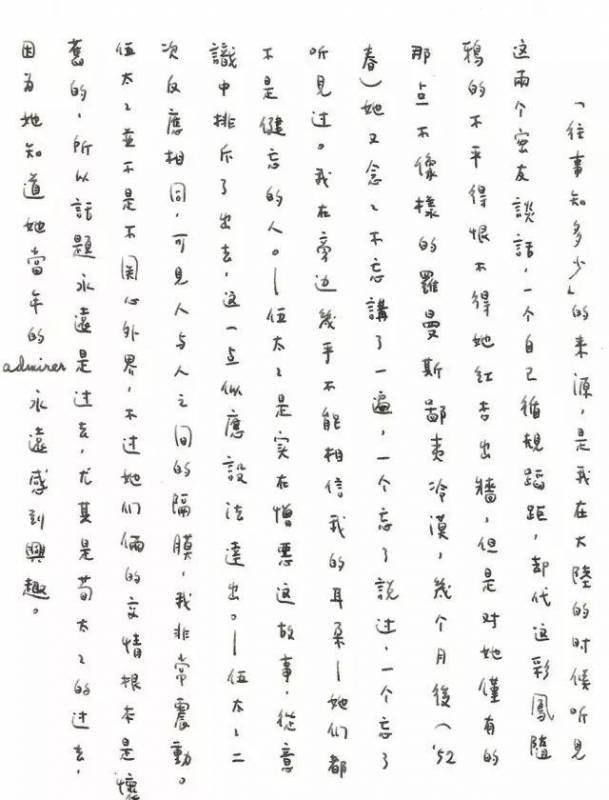 「往事知多少」的来源，是我在大陸的时候听见
这兩个密友談話，一个自己循規蹈距，却代这彩鳳隨
鴉的不平得恨不得她紅杏出牆，但是对她僅有的
那点不像樣的羅曼斯鄙夷冷漠，幾个月後（'52
春）她又念〻不忘講了一遍，一个忘了說过，一个忘了
听見过。我在旁边幾乎不能相信我的耳朶—她们都
不是健忘的人。—伍太〻是实在憎悪这故事，從意
識中排斥了出去，这一点似應設法達出。—伍太〻二
次反應相同，可見人与人之间的隔膜，我非常震動。
伍太〻並不是不関心外界，不过她们倆的交情根本是懷
舊的，所以話題永遠是过去，尤其是荀太〻的过去，
因为她知道她當年的admirer永遠感到興趣。